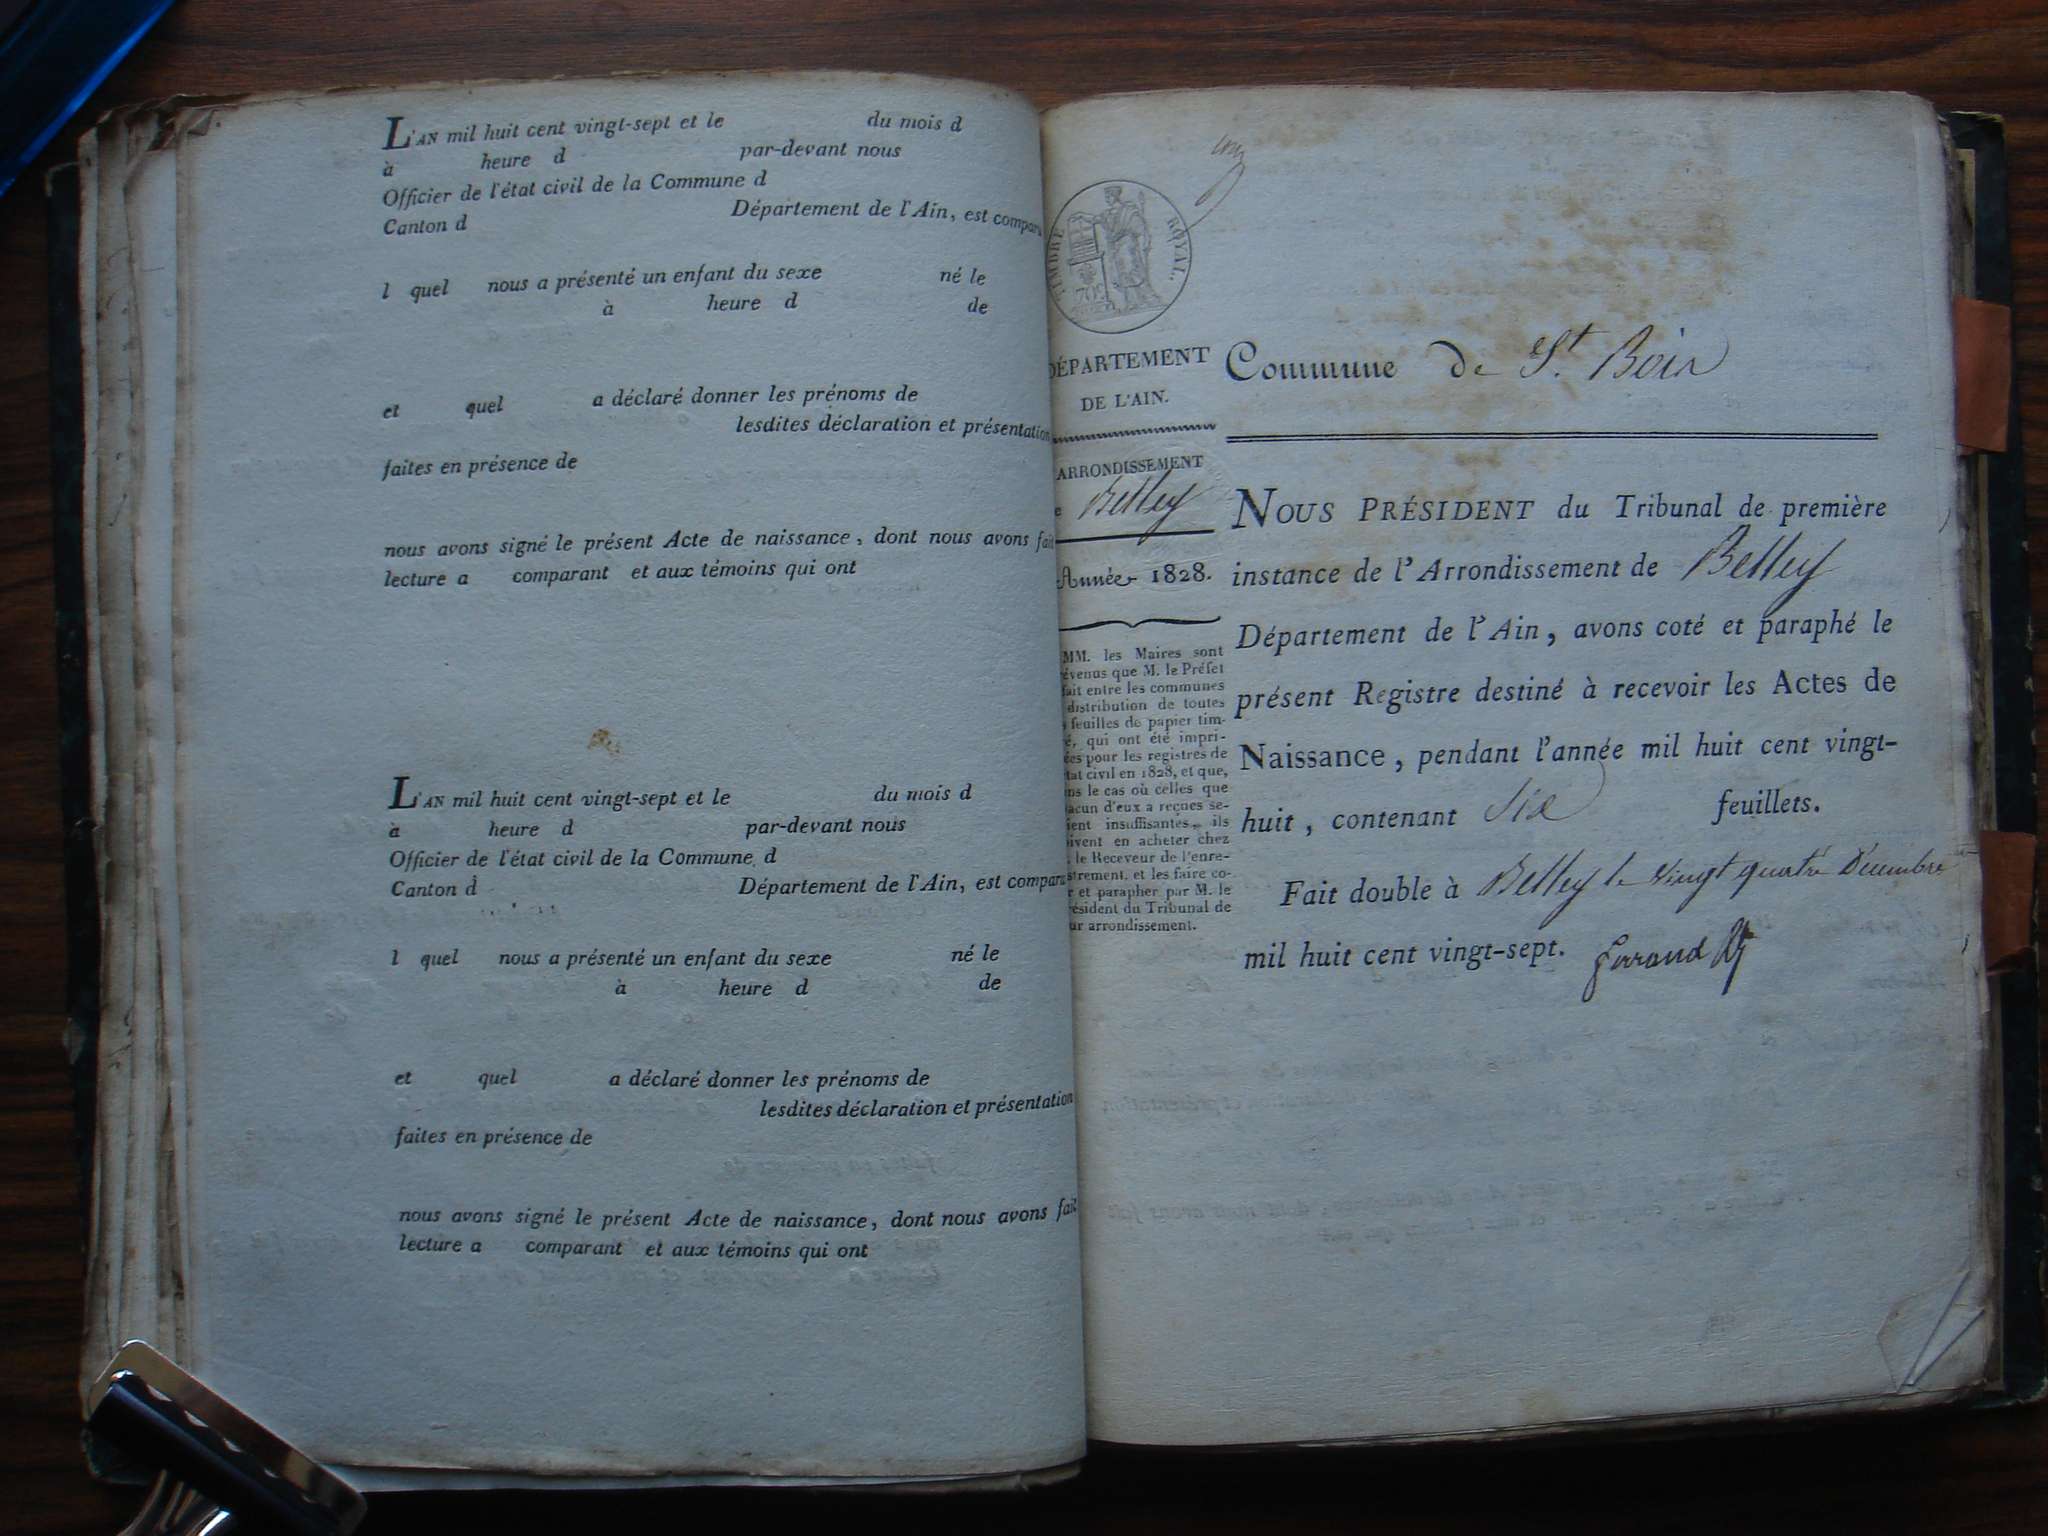 L'AN mil huit cent vingt-sept et le du mois d
à heure d par-devant nous
Officier de l'état civil de la Commune d
Canton d Département de l'Ain, est compara
l quel nous a présenté un enfant du sexe né le
à heure d de
et quel a déclaré donner les prénoms de
lesdites déclaration et présentation
faites en présence de
nous avons signé le présent Acte de naissance, dont nous avons fait
lecture a comparant et aux témoins qui ont
L'AN mil huit cent vingt-sept et le du mois d
à heure d par-devant nous
Officier de l'état civil de la Commune d
Canton d Département de l'Ain, est compara
l quel nous a présenté un enfant du sexe né le
à heure d de
et quel a déclaré donner les prénoms de
lesdites déclaration et présentation
faites en présence de
nous avons signé le présent Acte de naissance, dont nous avons fait
lecture a comparant et aux témoins qui ont
TIMBRE ROYAL.
DÉPARTEMENT
DE L'AIN.
ARRONDISSEMENT
e Belley
Année 1828.
MM. les Maires sont
évenus que M. le Préfet
fait entre les communes
distribution de toutes
feuilles de papier tim-
é, qui ont été impri-
ées pour les registres de
tat civil en 1828, et que,
ns le cas où celles que
acun d'eux a reçues se-
ient insuffisantes, ils
ivent en acheter chez
le Receveur de l'enre-
strement, et les faire co-
r et parapher par M. le
résident du Tribunal de
ur arrondissement.
Commune de St. Bois
NOUS PRÉSIDENT du Tribunal de première
instance de l'Arrondissement de Belley
Département de l'Ain, avons coté et paraphé le
présent Registre destiné à recevoir les Actes de
Naissance, pendant l'année mil huit cent vingt-
huit, contenant Six feuillets.
Fait double à Belley le vingt quatre Décembre
mil huit cent vingt-sept.